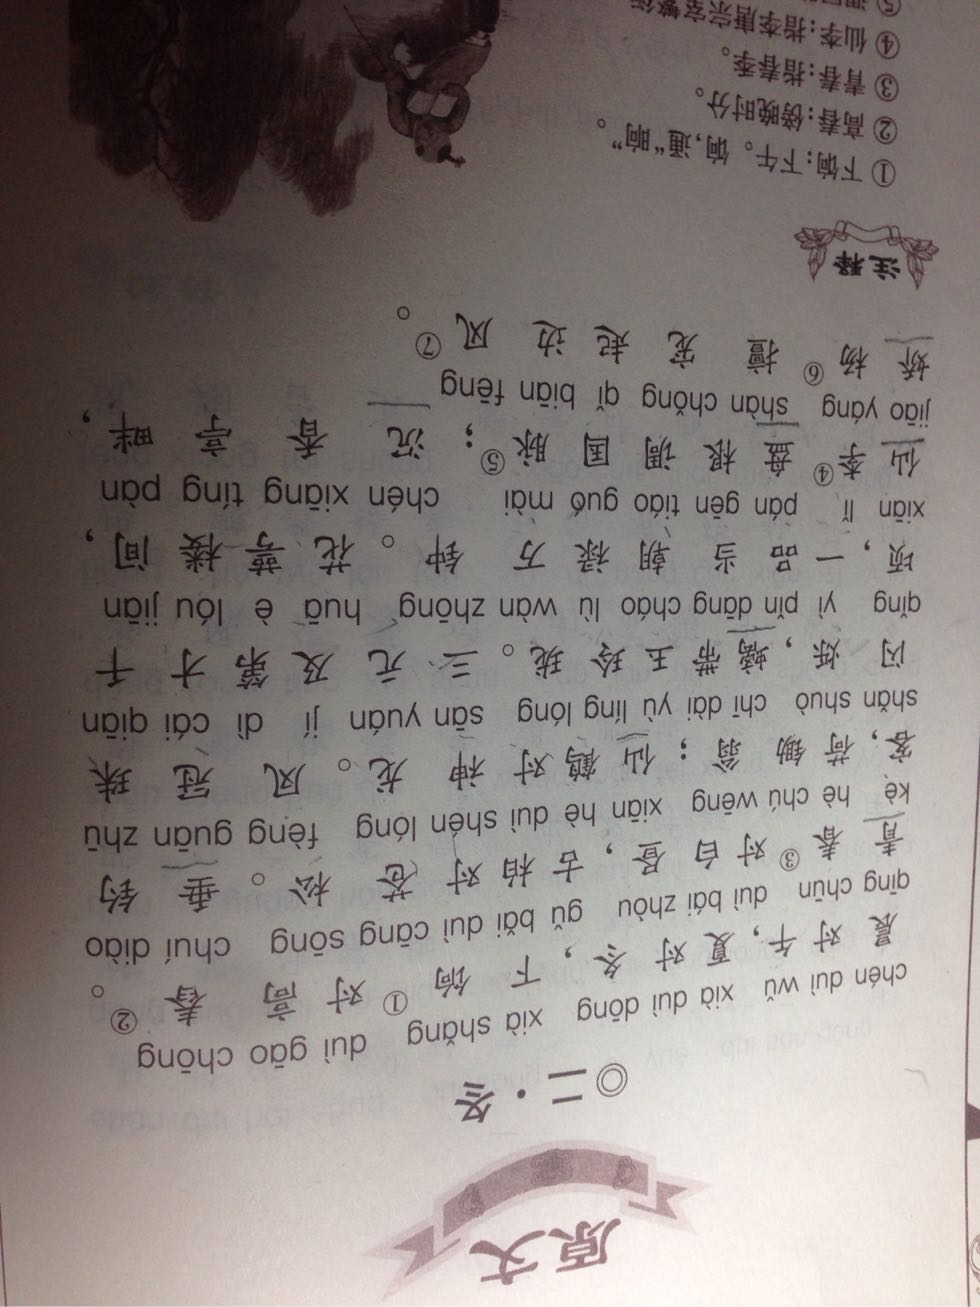 原文
◎二·冬
chén duì wǔ xià duì dōng xià shǎng duì gāo chōng
晨对午，夏对冬，下饷①对高舂②。
qīng chūn duì bái zhòu gǔ bǎi duì cāng sōng chuí diào
青春③对白昼，古柏对苍松。垂钓
kè hè chú wēng xiān hè duì shén lóng fèng guān zhū
客，荷锄翁；仙鹤对神龙。凤冠珠
shǎn shuò chī dài yù líng lóng sān yuán jí dì cái qiān
闪烁，螭带玉玲珑。三元及第才千
qǐng yì pǐn dāng cháo lù wàn zhōng huā è lóu jiān
顷，一品当朝禄万钟。花萼楼间，
xiān lǐ pán gēn tiáo guó mài chén xiāng tíng pàn
仙李④盘根调国脉⑤；沉香亭畔，
jiāo yáng shàn chǒng qǐ biān fēng
娇杨⑥擅宠起边风⑦。
注释
①下饷：下午。饷，通“晌”。
②高舂：傍晚时分。
③青春：指春季。
④仙李：指李唐宗室繁
⑤